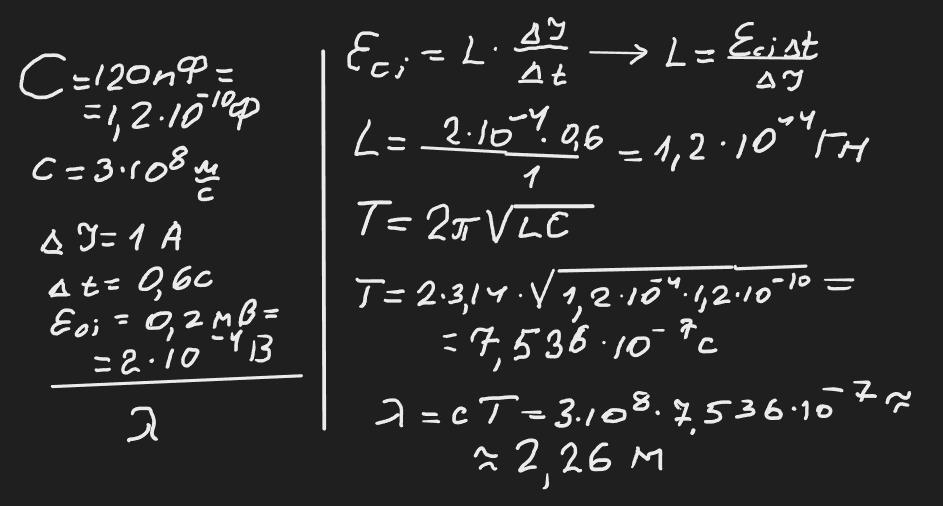 C = 120 пФ =
= 1,2 · 10⁻¹⁰ Ф
c = 3 · 10⁸ м/с
Δ I = 1 A
Δ t = 0,6 с
Ɛci = 0,2 мВ =
= 2 · 10⁻⁴ В
λ
Ɛci = L · ΔI/Δt → L = Ɛci Δt/ΔI
L = 2 · 10⁻⁴ · 0,6/1 = 1,2 · 10⁻⁴ Гн
T = 2π√LC
T = 2 · 3,14 · √1,2 · 10⁻⁴ · 1,2 · 10⁻¹⁰ =
= 7,536 · 10⁻⁷ с
λ = cT = 3 · 10⁸ · 7,536 · 10⁻⁷ ≈
≈ 2,26 м